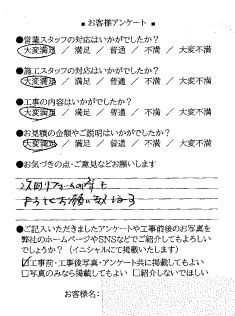 ■ お客様アンケート ■
●営業スタッフの対応はいかがでしたか？
大変満足 ／ 満足 ／ 普通 ／ 不満 ／ 大変不満
●施工スタッフの対応はいかがでしたか？
大変満足 ／ 満足 ／ 普通 ／ 不満 ／ 大変不満
●工事の内容はいかがでしたか？
大変満足 ／ 満足 ／ 普通 ／ 不満 ／ 大変不満
●お見積の金額やご説明はいかがでしたか？
大変満足 ／ 満足 ／ 普通 ／ 不満 ／ 大変不満
●お気づきの点・ご意見などお願いします
次回リフォームの際も
お願い致します
●ご記入いただきましたアンケートや工事前後のお写真を
弊社のホームページやSNSなどでご紹介してもよろしい
でしょうか？（イニシャルにて掲載いたします）
☑工事前・工事後写真・アンケート共に掲載してもよい
□写真のみなら掲載してもよい □紹介しないでほしい
お客様名：